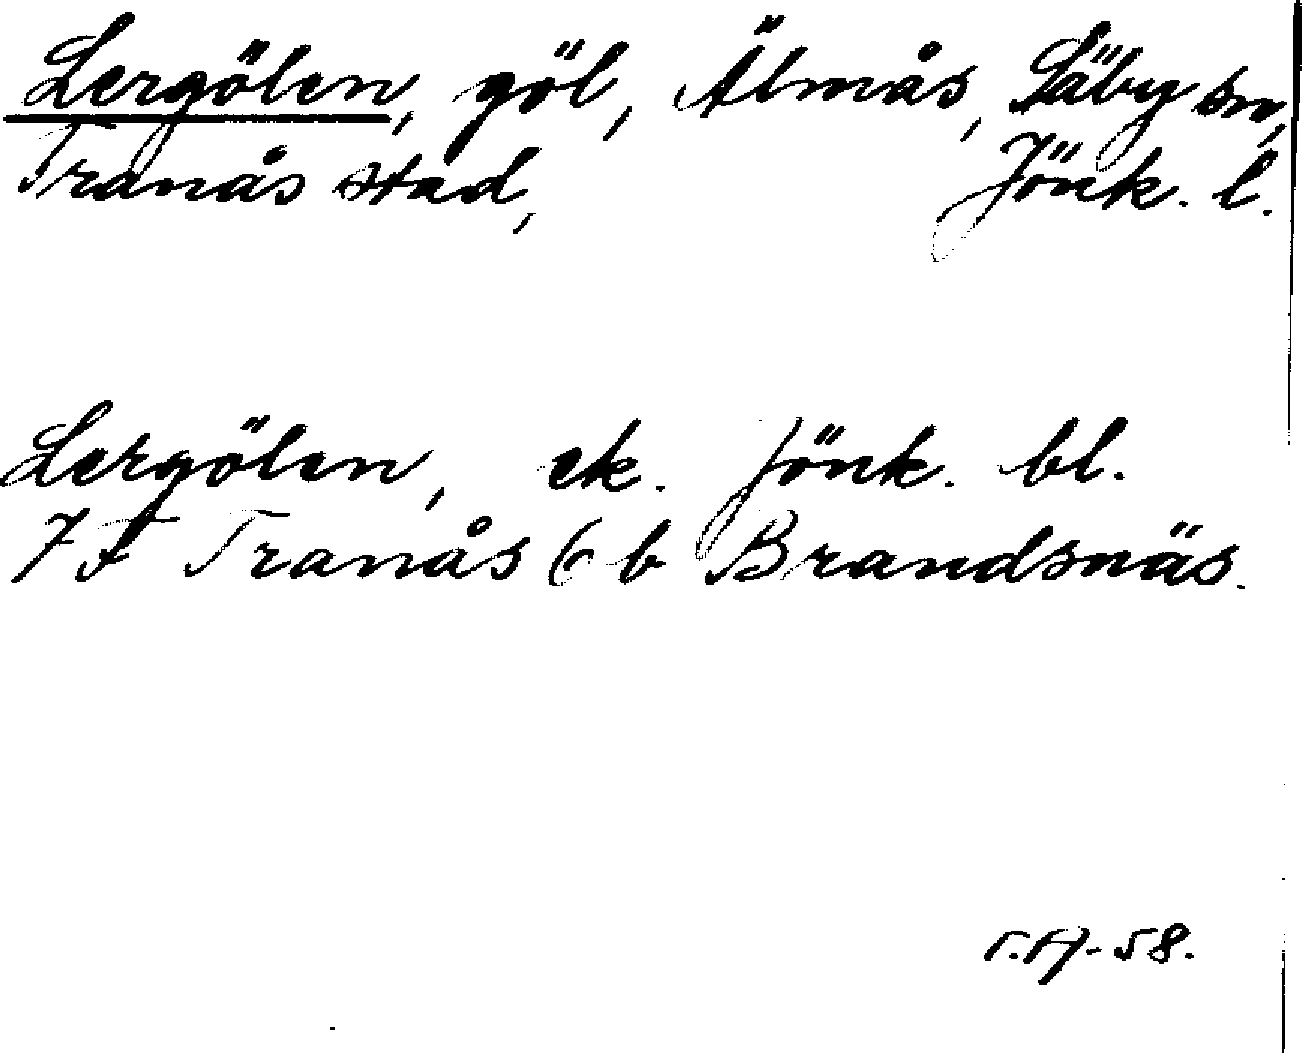 Lergölen, göl, Älmås, Säby sn,
Tranås stad, Jönk. l.
Lergölen, ek. Jönk. bl.
7F Tranås 6 b Brandsnäs.
58.